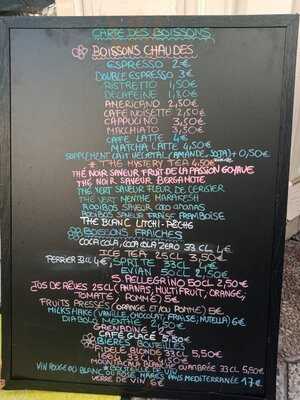 CARTE DES BOISSONS
BOISSONS CHAUDES
ESPRESSO 2€
DOUBLE ESPRESSO 3€
RISTRETTO 1,50€
DECAFEINE 1,80€
AMERICANO 2,50€
CAFE NOISETTE 2,50€
CAPPUCINO 3,50€
MACCHIATO 3,50€
CAFE LATTE 4€
MATCHA LATTE 4,50€
SUPPLEMENT LAIT VEGETAL (AMANDE, SOJA) + 0,50€
* THE MYSTERY TEA 4,50€
THE NOIR SAVEUR FRUIT DE LA PASSION GOYAVE
THE NOIR SAVEUR BERGAMOTE
THE VERT SAVEUR FLEUR DE CERISIER
THE VERT MENTHE MARAKESH
ROOIBOS SAVEUR COCO ANANAS
ROOIBOS SAVEUR FRAISE FRAMBOISE
THE BLANC LITCHI-PÊCHE
BOISSONS FRAICHES
COCA COLA, COCA COLA ZERO 33 CL 4€
ICE TEA 25CL 3,50€
PERRIER 33CL 4€, SPRITE 33CL
EVIAN 50CL 2,50€
S. PELLEGRINO 50CL 2,50€
JUS DE RÊVES 25CL (ANANAS, MULTIFRUIT, ORANGE,
TOMATE, POMME) 5€
FRUITS PRESSÉS (ORANGE ET/OU POMME) 5€
MILKSHAKE (VANILLE, CHOCOLAT, FRAISE, NUTELLA) 6€
DIABOLO MENTHE 2,50€
GRENADINE
CAFE GLACÉ 5,50€
BIERES BOUTEILLE
FIDELE BLONDE 33CL 5,50€
1664
OU AMBRÉE 33CL 5,50€
BOUTEILLE DE VIN
VIN ROUGE OU BLANC OU ROSÉ, MARES PAYS MEDITERRANEE 17€
VERRE DE VIN 6€